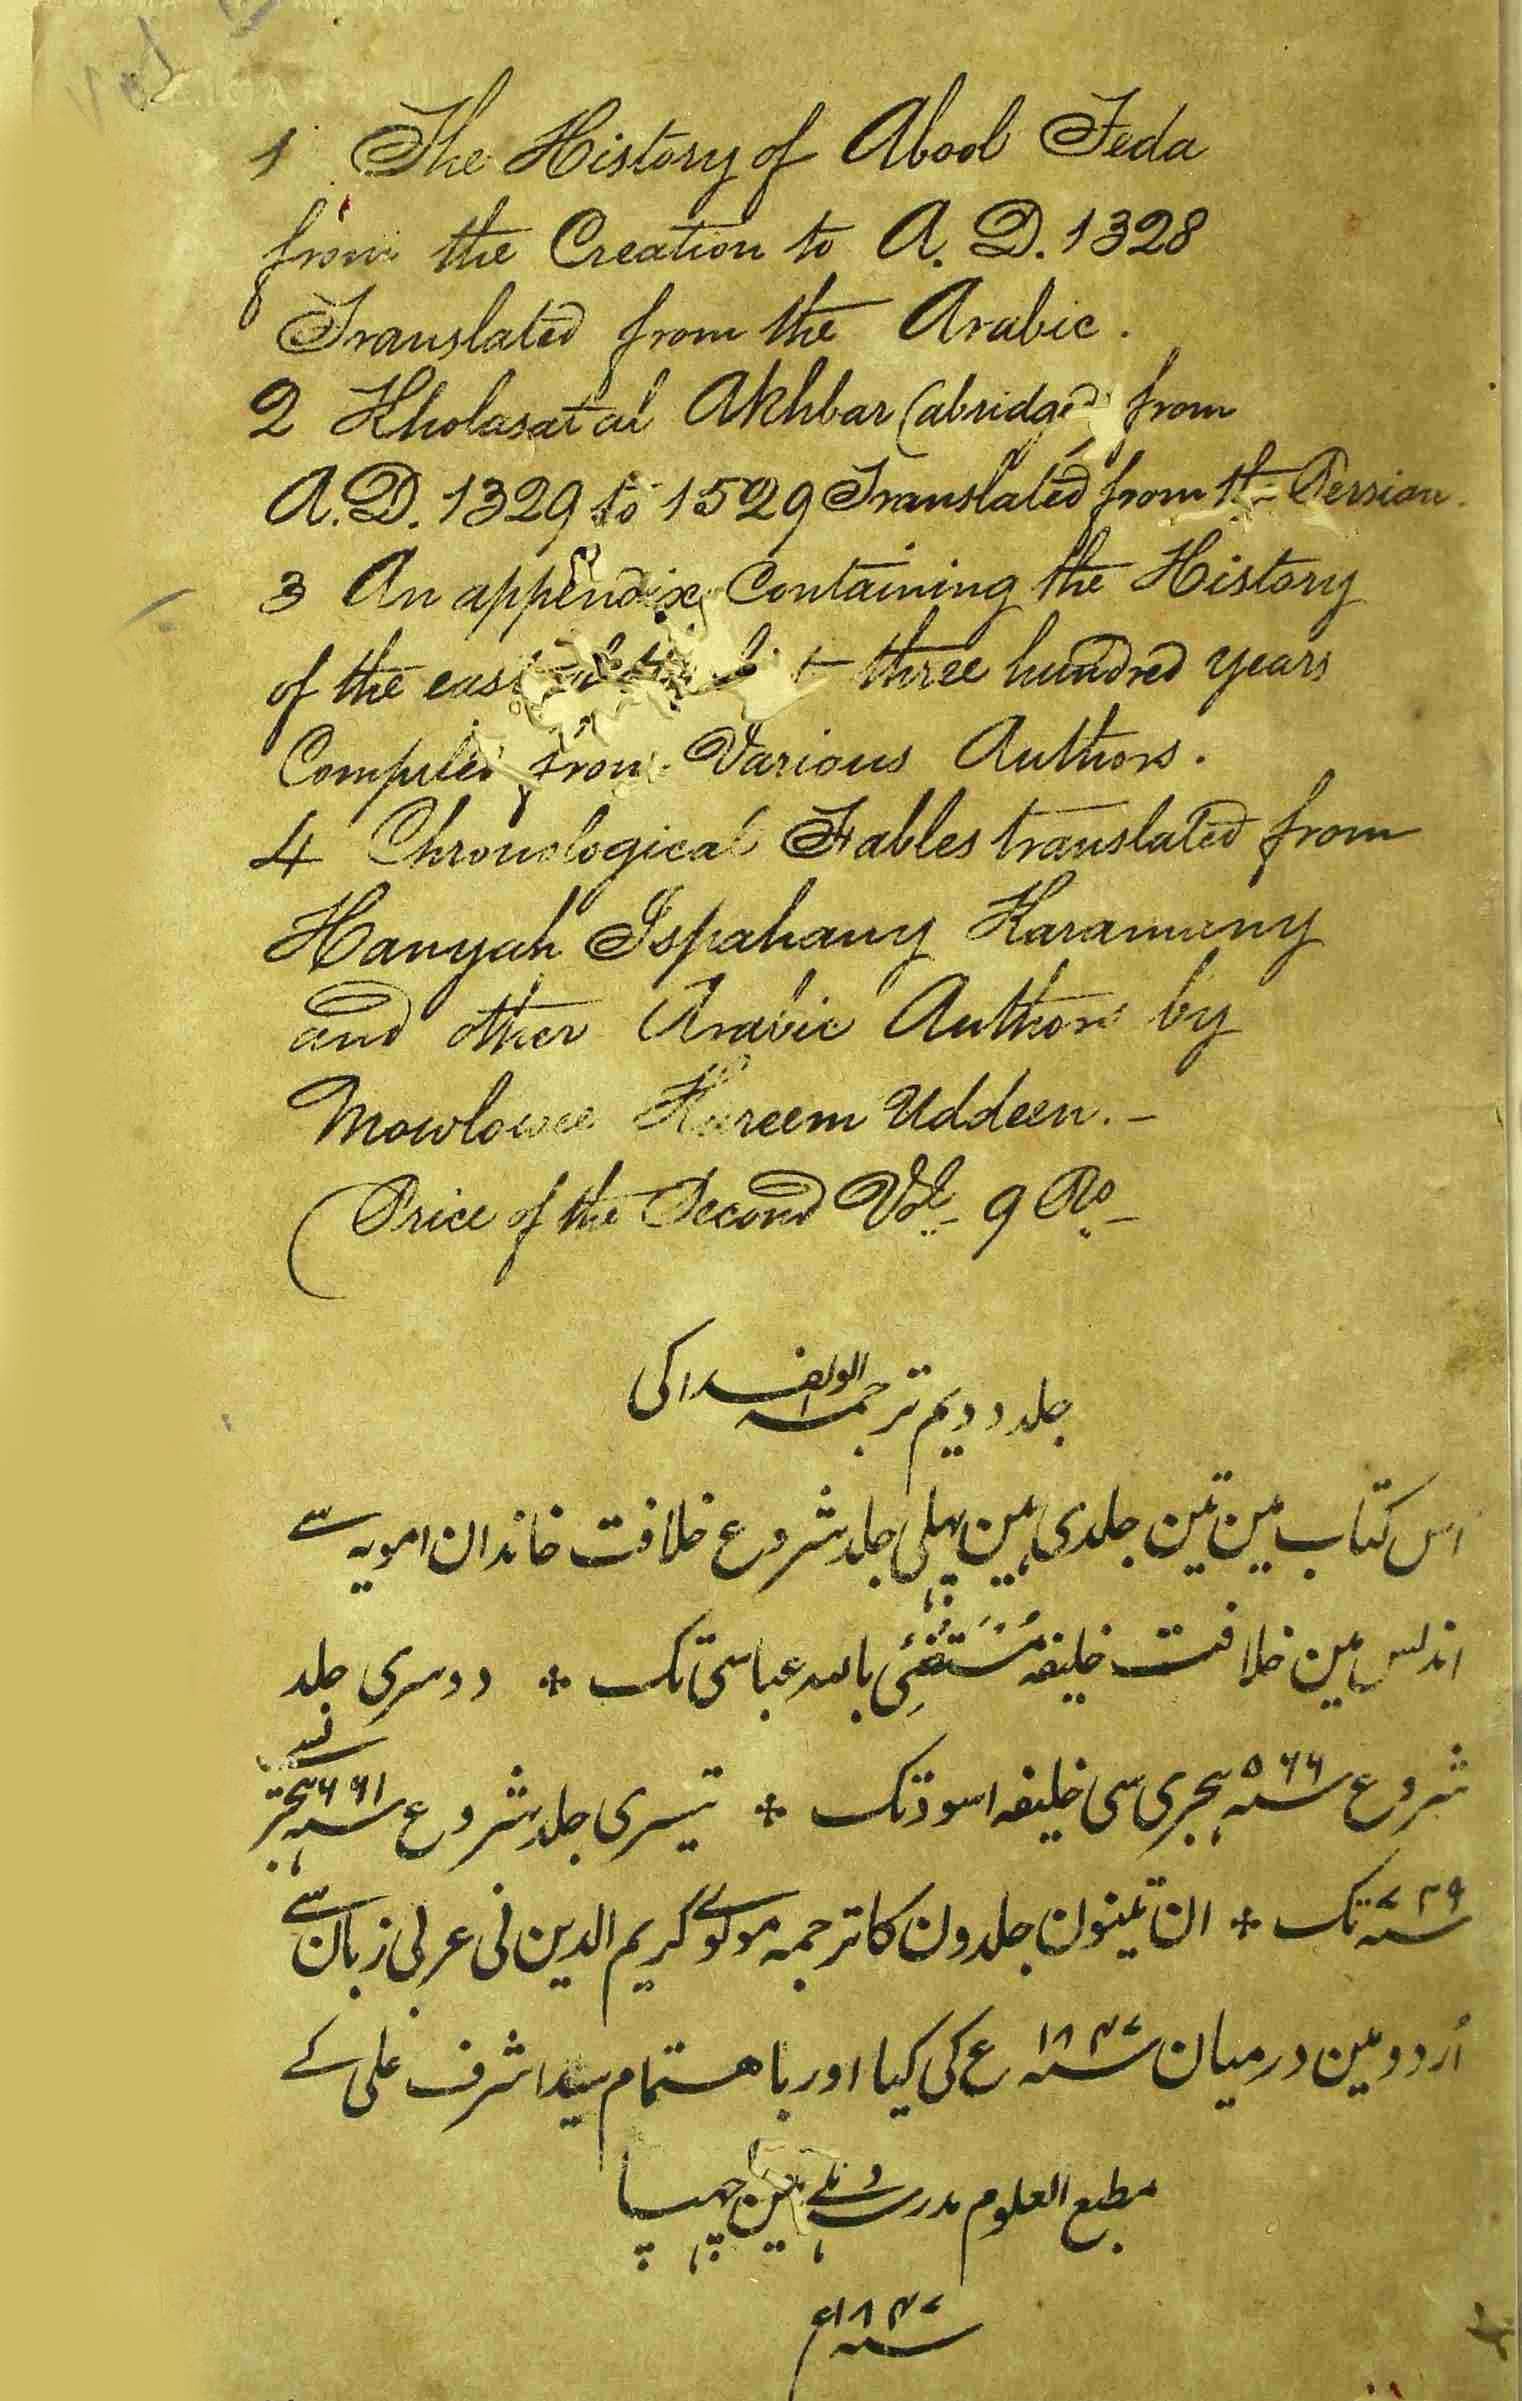 Vol 2
1 The History of Abool Feda
from the Creation to A. D. 1328
Translated from the Arabic.
2 Kholasat al Akhbar (abridged) from
A.D. 1329 to 1529 Translated from the Persian.
3 An appendix Containing the History
of the east three hundred years
Compiled from Various Authors.
4 Chronological Tables translated from
Hanyah Ispahany Karamany
and other Arabic Authors by
Mowlowee Kureem Uddeen. -
(Price of the Second Vol - 9 Rs -
جلد دویم ترجمہ ابوالفدا کی
اس کتاب مین تین جلدی ہین پہلی جلد شروع خلافت خاندان امویہ سے
اندلس مین خلافت خلیفہ مستضئی باللہ عباسی تک * دوسری جلد
شروع سنہ ۵۶۶ ہجری سی خلیفہ اسود تک * تیسری جلد شروع سنہ ۶۶۱ ہجری سے
سنہ ۷۲۹ تک * ان تینون جلدون کا ترجمہ مولوے کریم الدین نی عربی زبان سے
اُردو مین درمیان سنہ ۱۸۴۷ ع کی کیا اور باہتمام سید اشرف علی کے
مطبع العلوم مدرسہ دہلے مین چھپا
سنہ ۱۸۴۷ ع